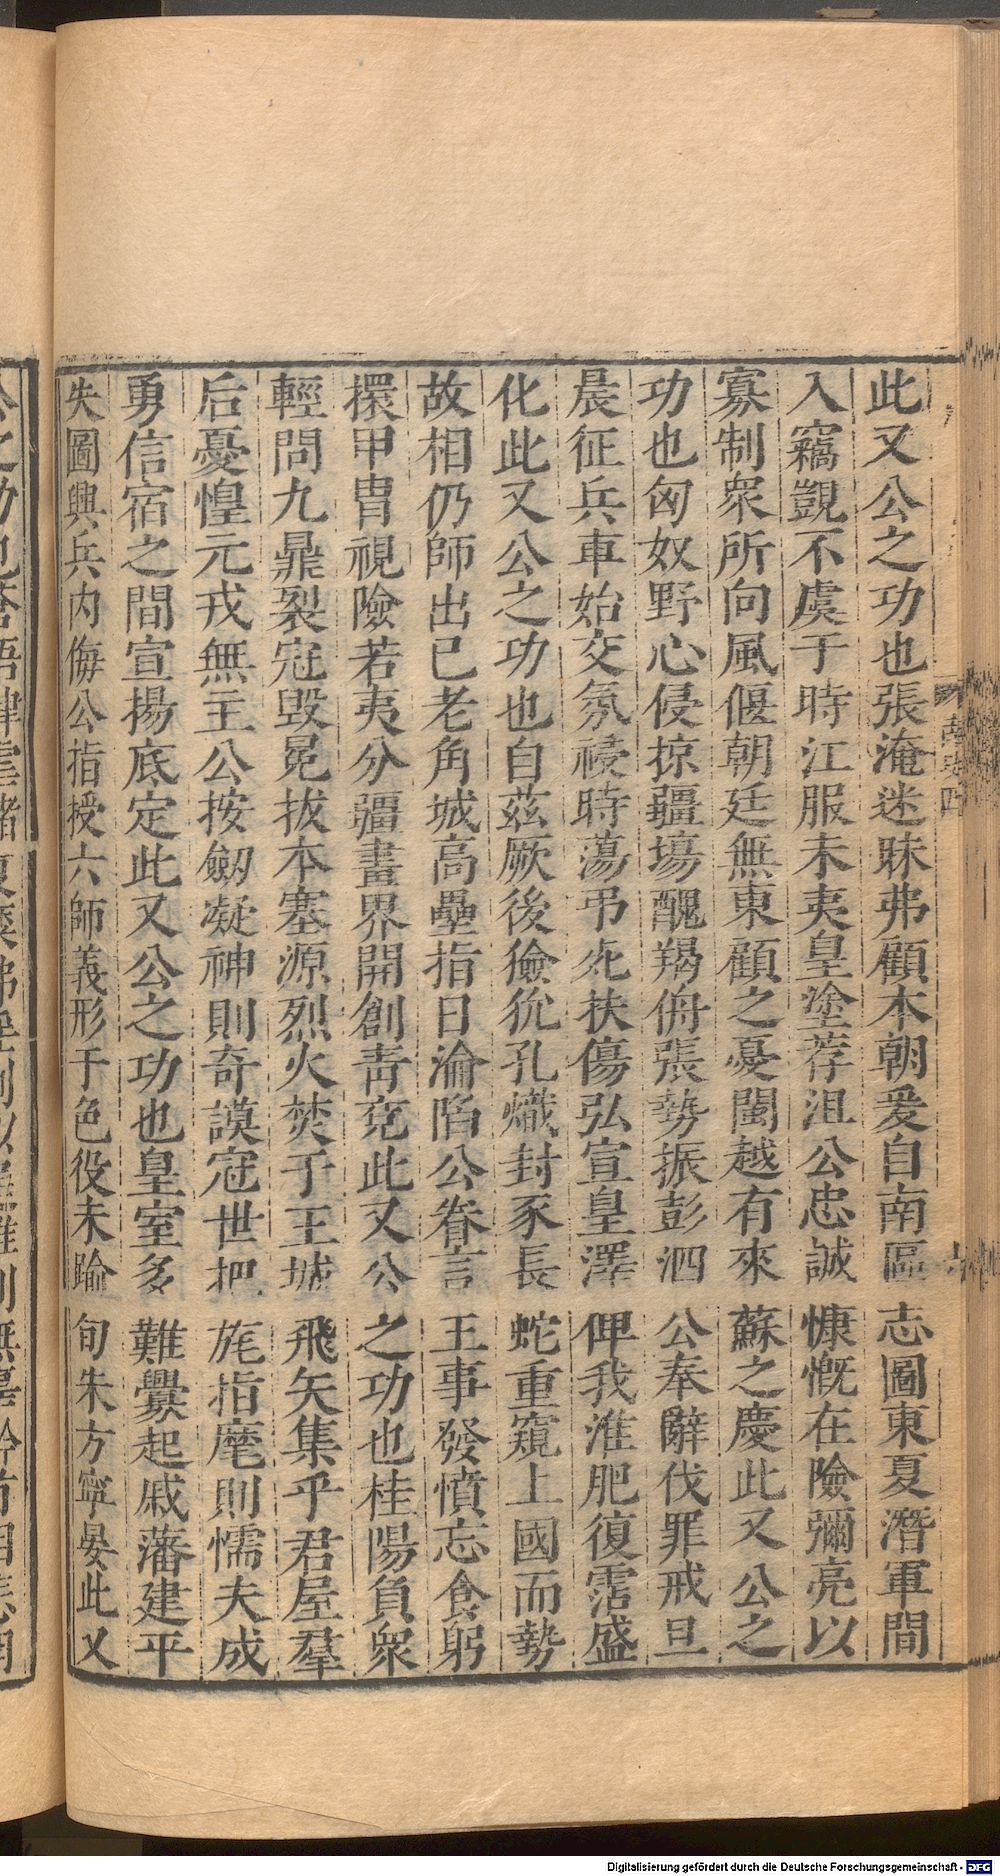 此又公之功也張淹迷昧弗顧本朝爰自南區志圖東夏潛軍間
入竊覬不虞于時江服未夷皇塗荐沮公忠誠慷慨在險彌亮以
寡制衆所向風偃朝廷無東顧之憂閩越有來蘇之慶此又公之
功也匈奴野心侵掠疆埸醜羯侜張勢振彭泗公奉辭伐罪戒旦
晨征兵車始交氛祲時蕩弔死扶傷弘宣皇澤俾我淮肥復霑盛
化此又公之功也自茲厥後獫狁孔熾封豕長蛇重窺上國而勢
故相仍師出已老角城高壘指日淪陷公眷言王事發憤忘食躬
擐甲冑視險若夷分疆畫界開創青兗此又公之功也桂陽負衆
輕問九鼎裂冠毀冕拔本塞源烈火焚于王城飛矢集乎君屋羣
后憂惶元戎無主公按劒凝神則奇謨冠世把旄指麾則懦夫成
勇信宿之間宣揚底定此又公之功也皇室多難釁起戚藩建平
失圖興兵內侮公指授六師義形于色役未踰旬朱方寧晏此又
南史四
Digitalisierung gefördert durch die Deutsche Forschungsgemeinschaft - DFG